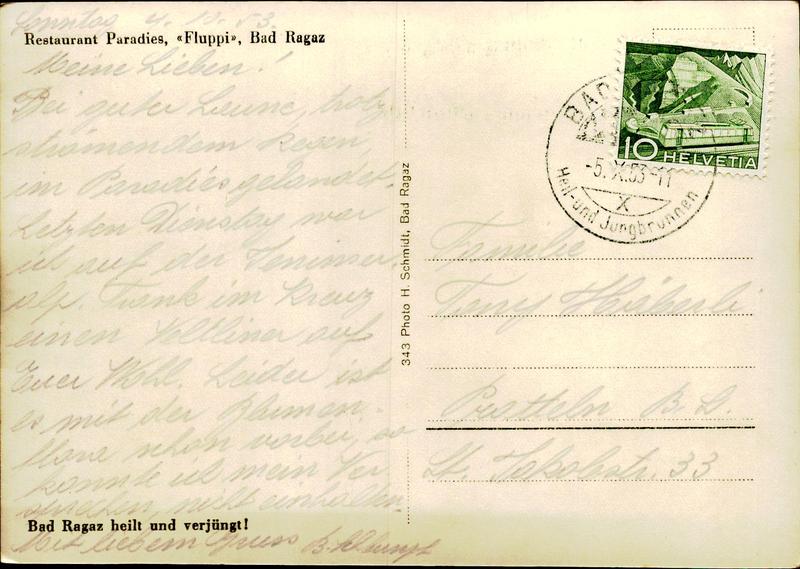 Sonntag 4.10.53.
Restaurant Paradies, «Fluppi», Bad Ragaz
Meine Lieben!
Bei guter Laune, trotz
strömendem Regen
im Paradies gelandet.
Letzten Dienstag war
ich auf der
alp. Trank im Kreuz
einen Veltliner auf
Euer Wohl. Leider ist
es mit der Blumen-
schon vorbei, so
konnte ich mein Ver
sprechen, nicht einhalten.
Bad Ragaz heilt und verjüngt!
Mit liebem Gruss
343 Photo H. Schmidt, Bad Ragaz
BAD
-5.X.53-11
X
Heil-und Jungbrunnen
10 HELVETIA
Familie
Häberli
Pratteln B.L.
St. Jakobstr. 33